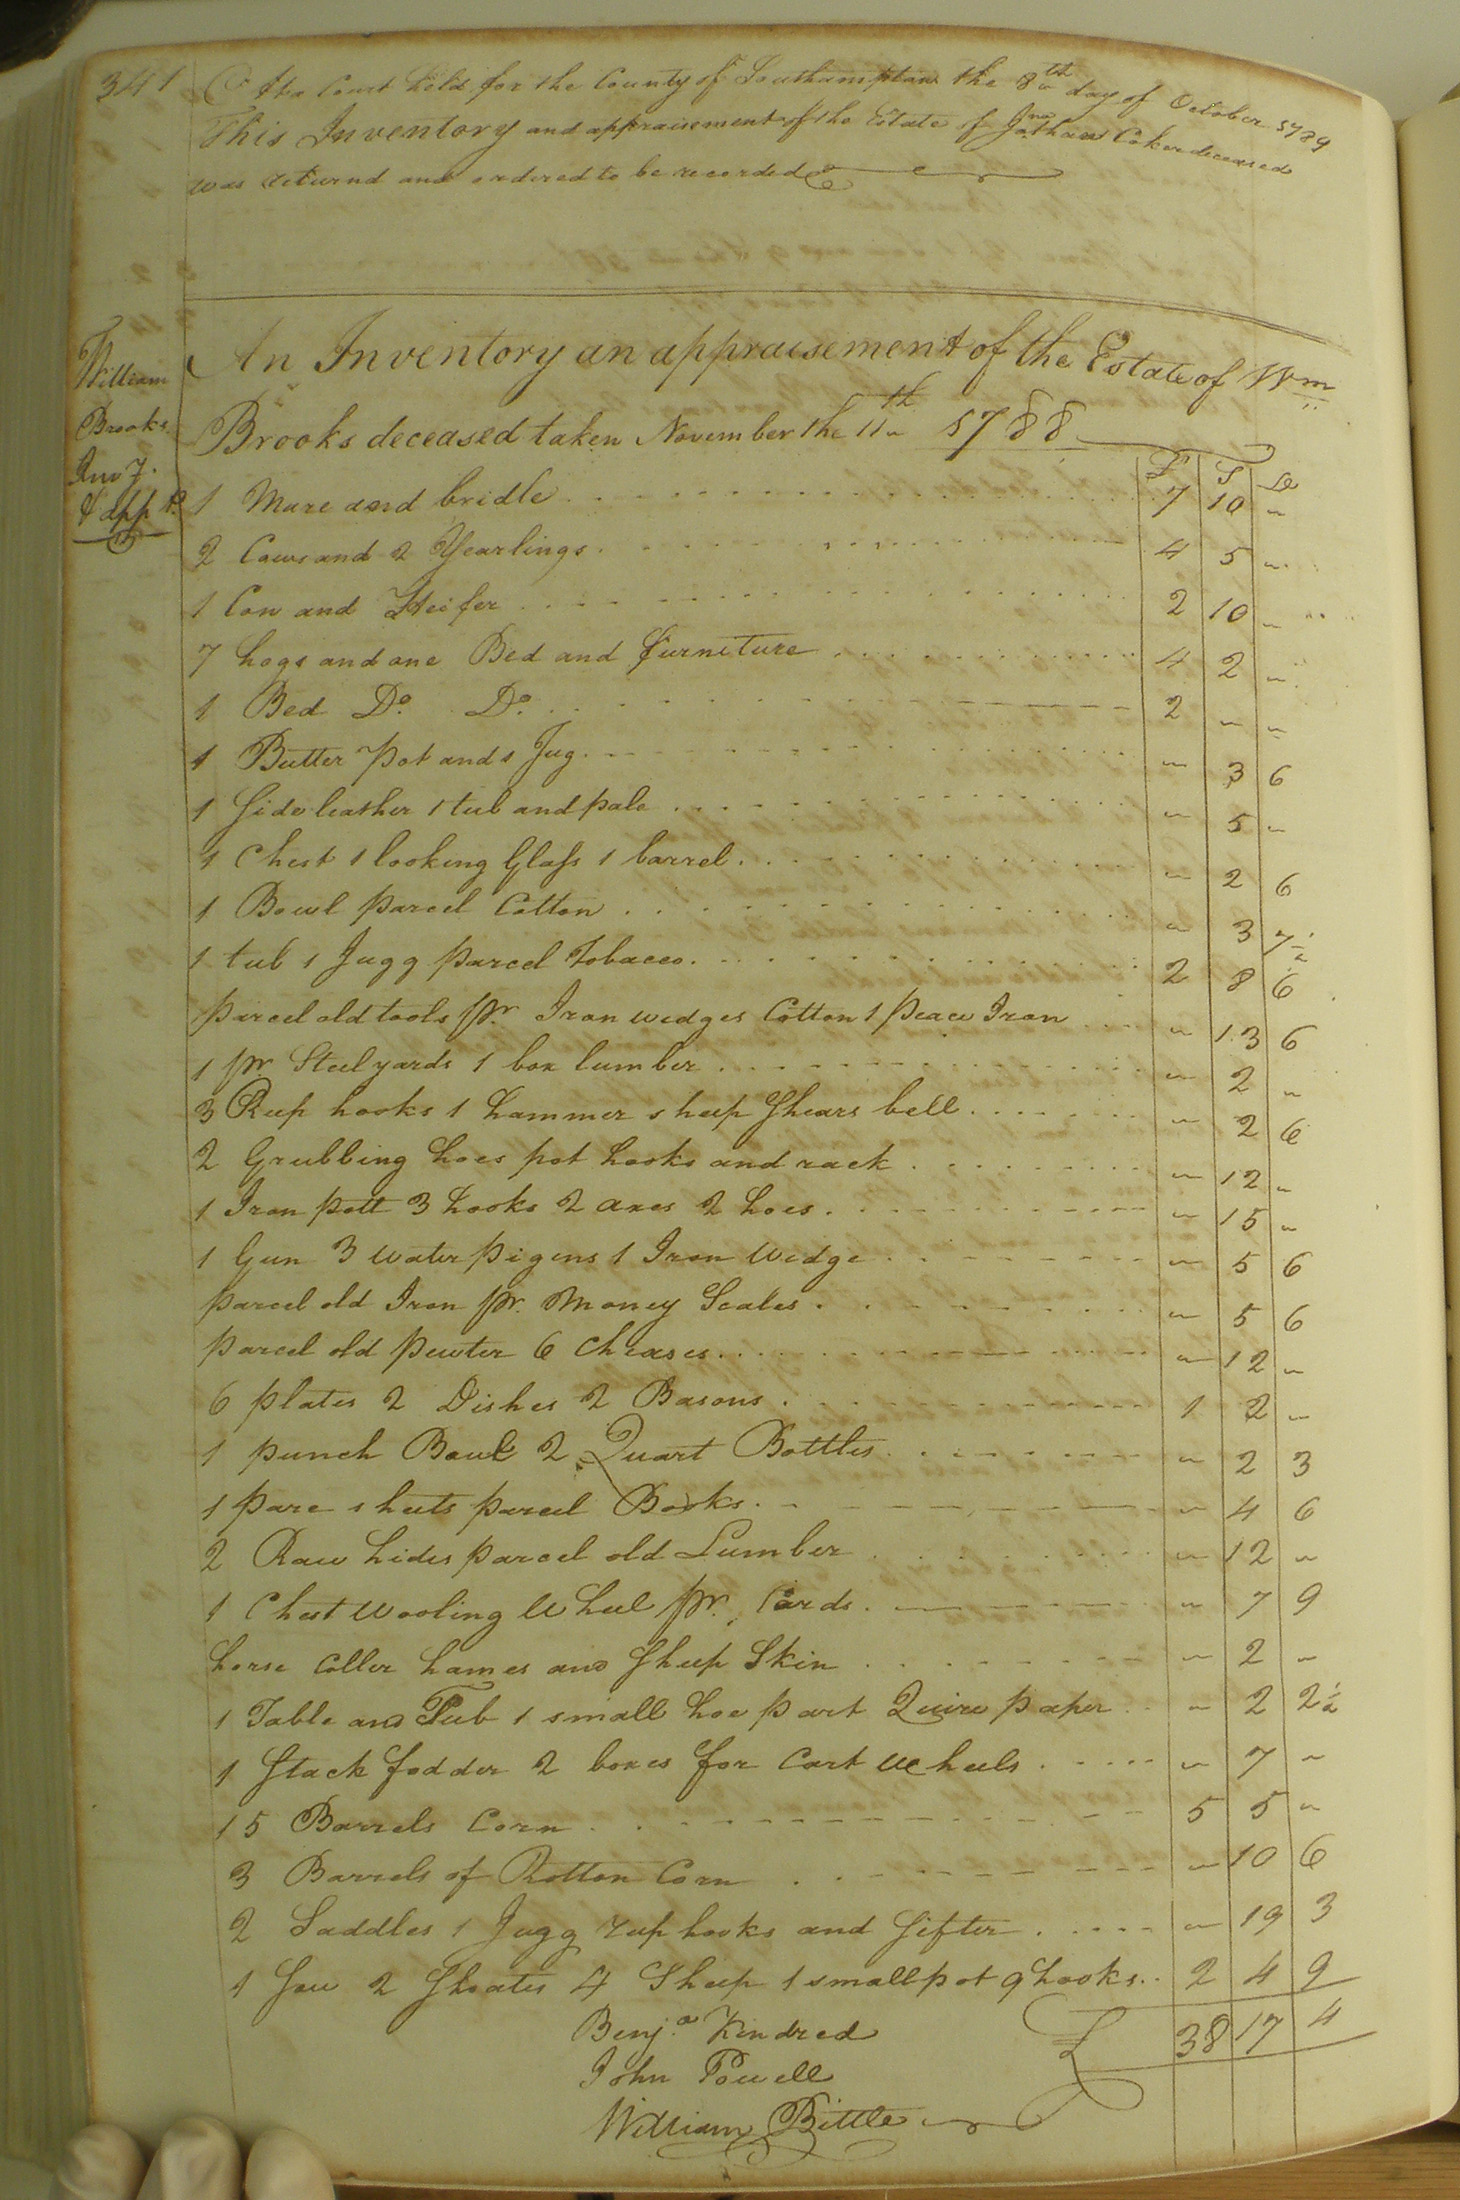 341
At a Court held for the County of Southampton the 8th day of October 1789
This Inventory and appraisement of the Estate of Jnathan Coker deceased
was returnd and ordered to be recorded
William
Brooks
Invy.
& appt.
An Inventory an appraisement of the Estate of Wm
Brooks deceased taken November the 11th 1788
£ S D
1 Mare and bridle 7 10 "
2 Cows and 2 Yearlings 4 5 "
1 Cow and Heifer 2 10 "
7 hogs and one Bed and furniture 4 2 "
1 Bed Do. Do. 2 " "
1 Butter Pot and 1 Jug " 3 6
1 Side leather 1 tub and pale " 5 "
1 Chest 1 looking Glass 1 barrel " 2 6
1 Bowl parcel Cotton " 3 7½
1 tub 1 Jugg parcel Tobacco 2 8 6
parcel old tools pr. Iron wedges Cotton 1 peace Iron " 13 6
1 pr Steelyards 1 box lumber " 2 "
3 Reep hooks 1 hammer sheep Shears bell " 2 6
2 Grubbing hoes pot hooks and rack " 12 "
1 Iron pott 3 hooks 2 axes 2 hoes " 15 "
1 Gun 3 water pigens 1 Iron Wedge " 5 6
parcel old Iron pr. Money Scales " 5 6
parcel old pewter 6 Cheases " 12 "
6 plates 2 Dishes 2 Basons 1 2 "
1 punch Bowl 2 Quart Bottles " 2 3
1 pare sheets parcel Books " 4 6
2 Raw hides parcel old Lumber " 12 "
1 Chest Wooling Wheel pr. Cards " 7 9
horse Coller hames and Sheep Skin " 2 "
1 Table and Tub 1 small hoe part Quire paper " 2 2½
1 Stack fodder 2 boxes for Cart Wheels " 7 "
15 Barrels Corn 5 5 "
3 Barrels of Rotton Corn " 10 6
2 Saddles 1 Jugg reep hooks and Sifter " 19 3
1 Sow 2 Shoates 4 Sheep 1 small pot 9 hooks 2 4 9
Benja. Kindred £ 38 17 4
John Powell
William Bittle